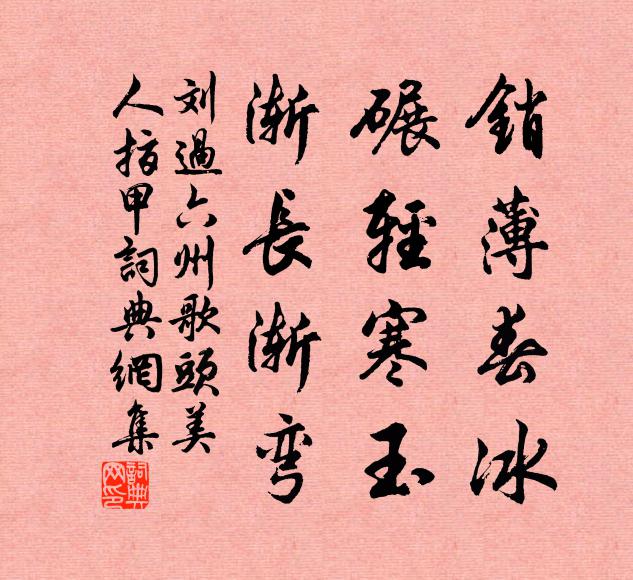 銷薄春冰
碾輕寒玉
漸長漸彎
刘過六州歌頭美
人指甲詞典網集
詞典网印